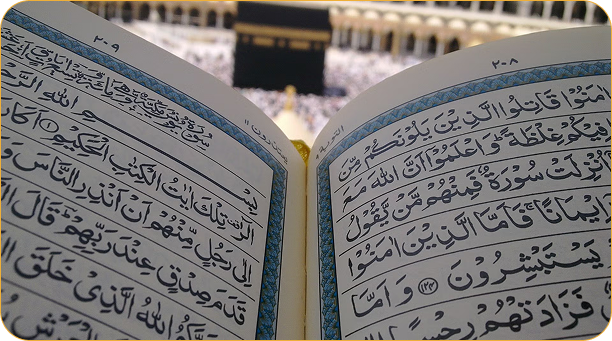 ٢٠٨
اٰمَنُوا قَاتِلُوا الَّذِيْنَ يَلُوْنَكُمْ مِّنَ
فِيْكُمْ غِلْظَةً ؕ وَاعْلَمُوْٓا اَنَّ اللّٰهَ مَعَ
اُنْزِلَتْ سُوْرَةٌ فَمِنْهُمْ مَّنْ يَّقُوْلُ
اِيْمَانًا ۚ فَاَمَّا الَّذِيْنَ اٰمَنُوْا
يَسْتَبْشِرُوْنَ ﴿١٢٤﴾ وَاَمَّا
فَزَادَتْهُمْ رِجْسًا
٢٠٩
بِسْمِ اللّٰهِ
الٓرٰ تِلْكَ اٰيٰتُ الْكِتٰبِ الْحَكِيْمِ ﴿١﴾ اَكَانَ
اِلٰى رَجُلٍ مِّنْهُمْ اَنْ اَنْذِرِ النَّاسَ وَ
قَدَمَ صِدْقٍ عِنْدَ رَبِّهِمْ ؕ قَالَ
اللّٰهُ الَّذِيْ خَلَقَ